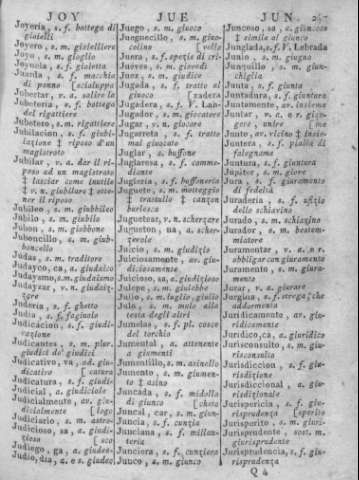 JOY
JUE
JUN. 247
Joyería, s. f. bottega di
gioielli
Joyero, s. m. gioielliere
Joyo, s. m. gioglio
Joyuela, s. f. gioietta
Jubeteria, s. f. bottega
del rigattiere
Jubetero, s. m. rigattiere
Jubilacion, s. f. giubi-
lazione ‡ riposo d'un
magistrato
Jubilar, v. a. dar il ri-
poso ad un magistrato
‡ lasciar come inutile
‡ v. n. giubilare ‡ otte-
ner il riposo
Jubileo, s. m. giubbileo
Júbilo, s. m. giubilo
Jubon, s. m. giubbone
Juboncillo, s. m. giub-
boncello
Júdas, s. m. traditore
Judayco, ca, a. giudaico
Judaysmo, s. m. giudaismo
Judayzar, v. n. giudaiz-
zare
Judería, s. f. ghetto
Judía, s. f. fagiuolo
Judicacion, s. f. giudi-
cazione
Judicantes, s. m. plur.
giudici de' giudici
Judicativo, va, ad. giu-
dicativo [catura
Judicatura, s. f. giudi-
Judicial, a. giudiciale
Judicialmente, av. giu-
dicialmente [logo
Judiciario, s. m. astro-
Judicioso, sa, a. giudi-
zioso [sco
Judiego, ga, a. giudea-
Judío, dia, a. e s. giudeo
Juego, s. m. giuoco
Juera, s. f. spezie di cri-
Juéves, s. m. giovedì
Juez, s. m. giudice
Jugada, s. f. tratto al
giuoco
Jugadera, s. f. V. Lan-
Jugador, s. m. giocatore
Jugar, v. n. giocare
Jugarreta, s. f. tratto
mal giuocato
Juglar, s. buffone
Juglaresa, s. f. comme-
diante
Juglería, s. f. buffoneria
Juguete, s. m. motteggio
‡ trastullo ‡ canzon
burlesca
Juguetear, v. n. scherzare
Jugueton, na, a. scher-
zevole
Juicio, s. m. giudizio
Juiciosamente, av. giu-
diziosamente
Juicioso, sa, a. giudizioso
Julepe, s. m. giulebbe
Julio, s. m. luglio, giulio
Julo, s. m. mulo alla
testa degli altri
Jumelas, s. f. pl. cosce
del torchio
Jumental, a. attenente
a giumenti
Jumentillo, s. m. asinello
Jumento, s. m. giumen-
to ‡ asino
Juncada, s. f. midolla
di giunco
Juncal, car, s. m. giun-
Juncia, s. f. cunzia
Junciana, s. f. millan-
teria
Junciera, s. f. cunziera
Junco, s. m. giunco
Juncoso, sa, a. giuncoso
‡ simile al giunco
Junglada, s. f. V. Lebrada
Junio, s. m. giugno
Junquillo, s. m. giun-
chiglia
Junta, s. f. giunta
Juntadura, s. f. giuntura
Juntamente, av. insieme
Juntar, v. a.
Junto, av. vicino ‡ insie-
Juntera, s. f. pialla di
falegname
Juntura, s. f. giuntura
Júpiter, s. m. giove
Jura, s. f. giuramento
di fedeltà
Juradería, s. f. ofizio
dello schiavino
Jurado, s. m. schiavino
Jurador, s. m. bestem-
miatore
Juramentar, v. a. n. r.
obbligar con giuramento
Juramento, s. m. giura-
mento
Jurar, v. a. giurare
Jurgina, s. f. strega, che
addormenta
Juridicamente, av. giu-
ridicamente
Jurídico, ca, a. giuridico
Jurisconsulto, s. m. giu-
risconsulto
Jurisdiccion, s. f. giu-
risdizione
Jurisdiccional, a. giu-
risdizionale
Jurispericia, s. f. giu-
risprudenza [sperito
Jurisperito, s. m. giuri-
Jurisprudente, sost. m.
giurisprudente
Jurisprudencia, s. f. giu-
risprudenza
Q 4